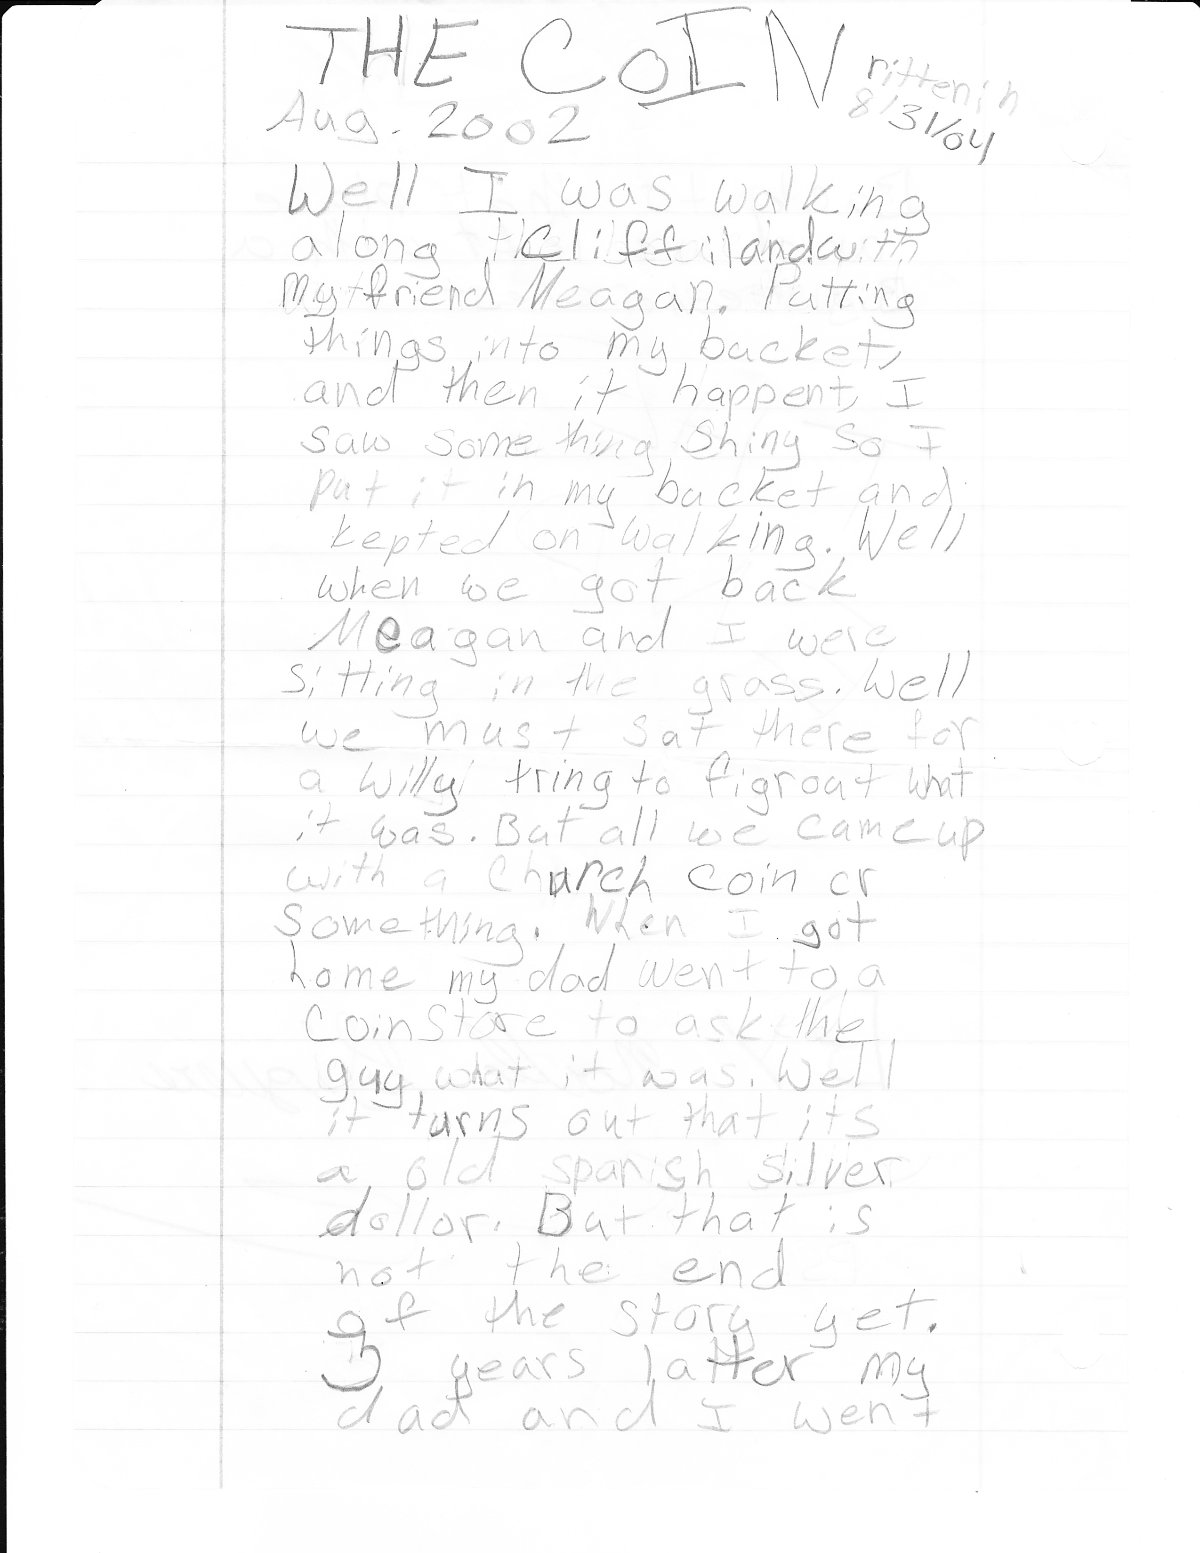 THE COIN
rittenin
8/31/04
Aug. 2002
Well I was walking
along the Cliff iland with
my friend Meagan. Putting
things into my bucket,
and then it happent, I
saw something Shiny So I
put it in my bucket and
kepted on walking. Well
when we got back
Meagan and I were
sitting in the grass. Well
we must sat there for
a willy tring to figrout what
it was. But all we came up
with a church coin or
Something. When I got
home my dad went to a
Coin Store to ask the
guy what it was. Well
it turns out that its
a old spanish silver
dollor. But that is
not the end
of the story yet.
3 years latter my
dad and I went